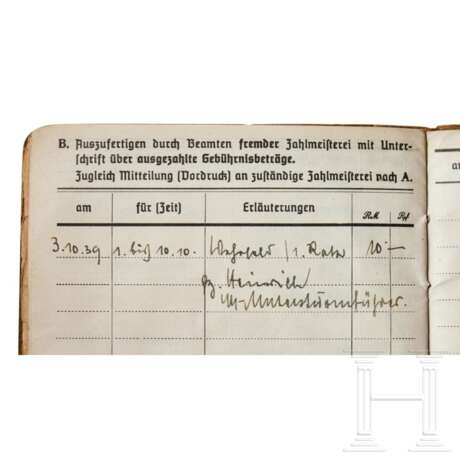 B. Auszufertigen durch Beamten fremder Zahlmeisterei mit Unter-
schrift über ausgezahlte Gebührnisbeträge.
Zugleich Mitteilung (Vordruck) an zuständige Zahlmeisterei nach A.
am für (Zeit) Erläuterungen RM Rpf
3.10.39 1. bis 10.10. Wehrsold / 1. Rate 10.–
gz. Heinrich
SS-Untersturmführer.
a